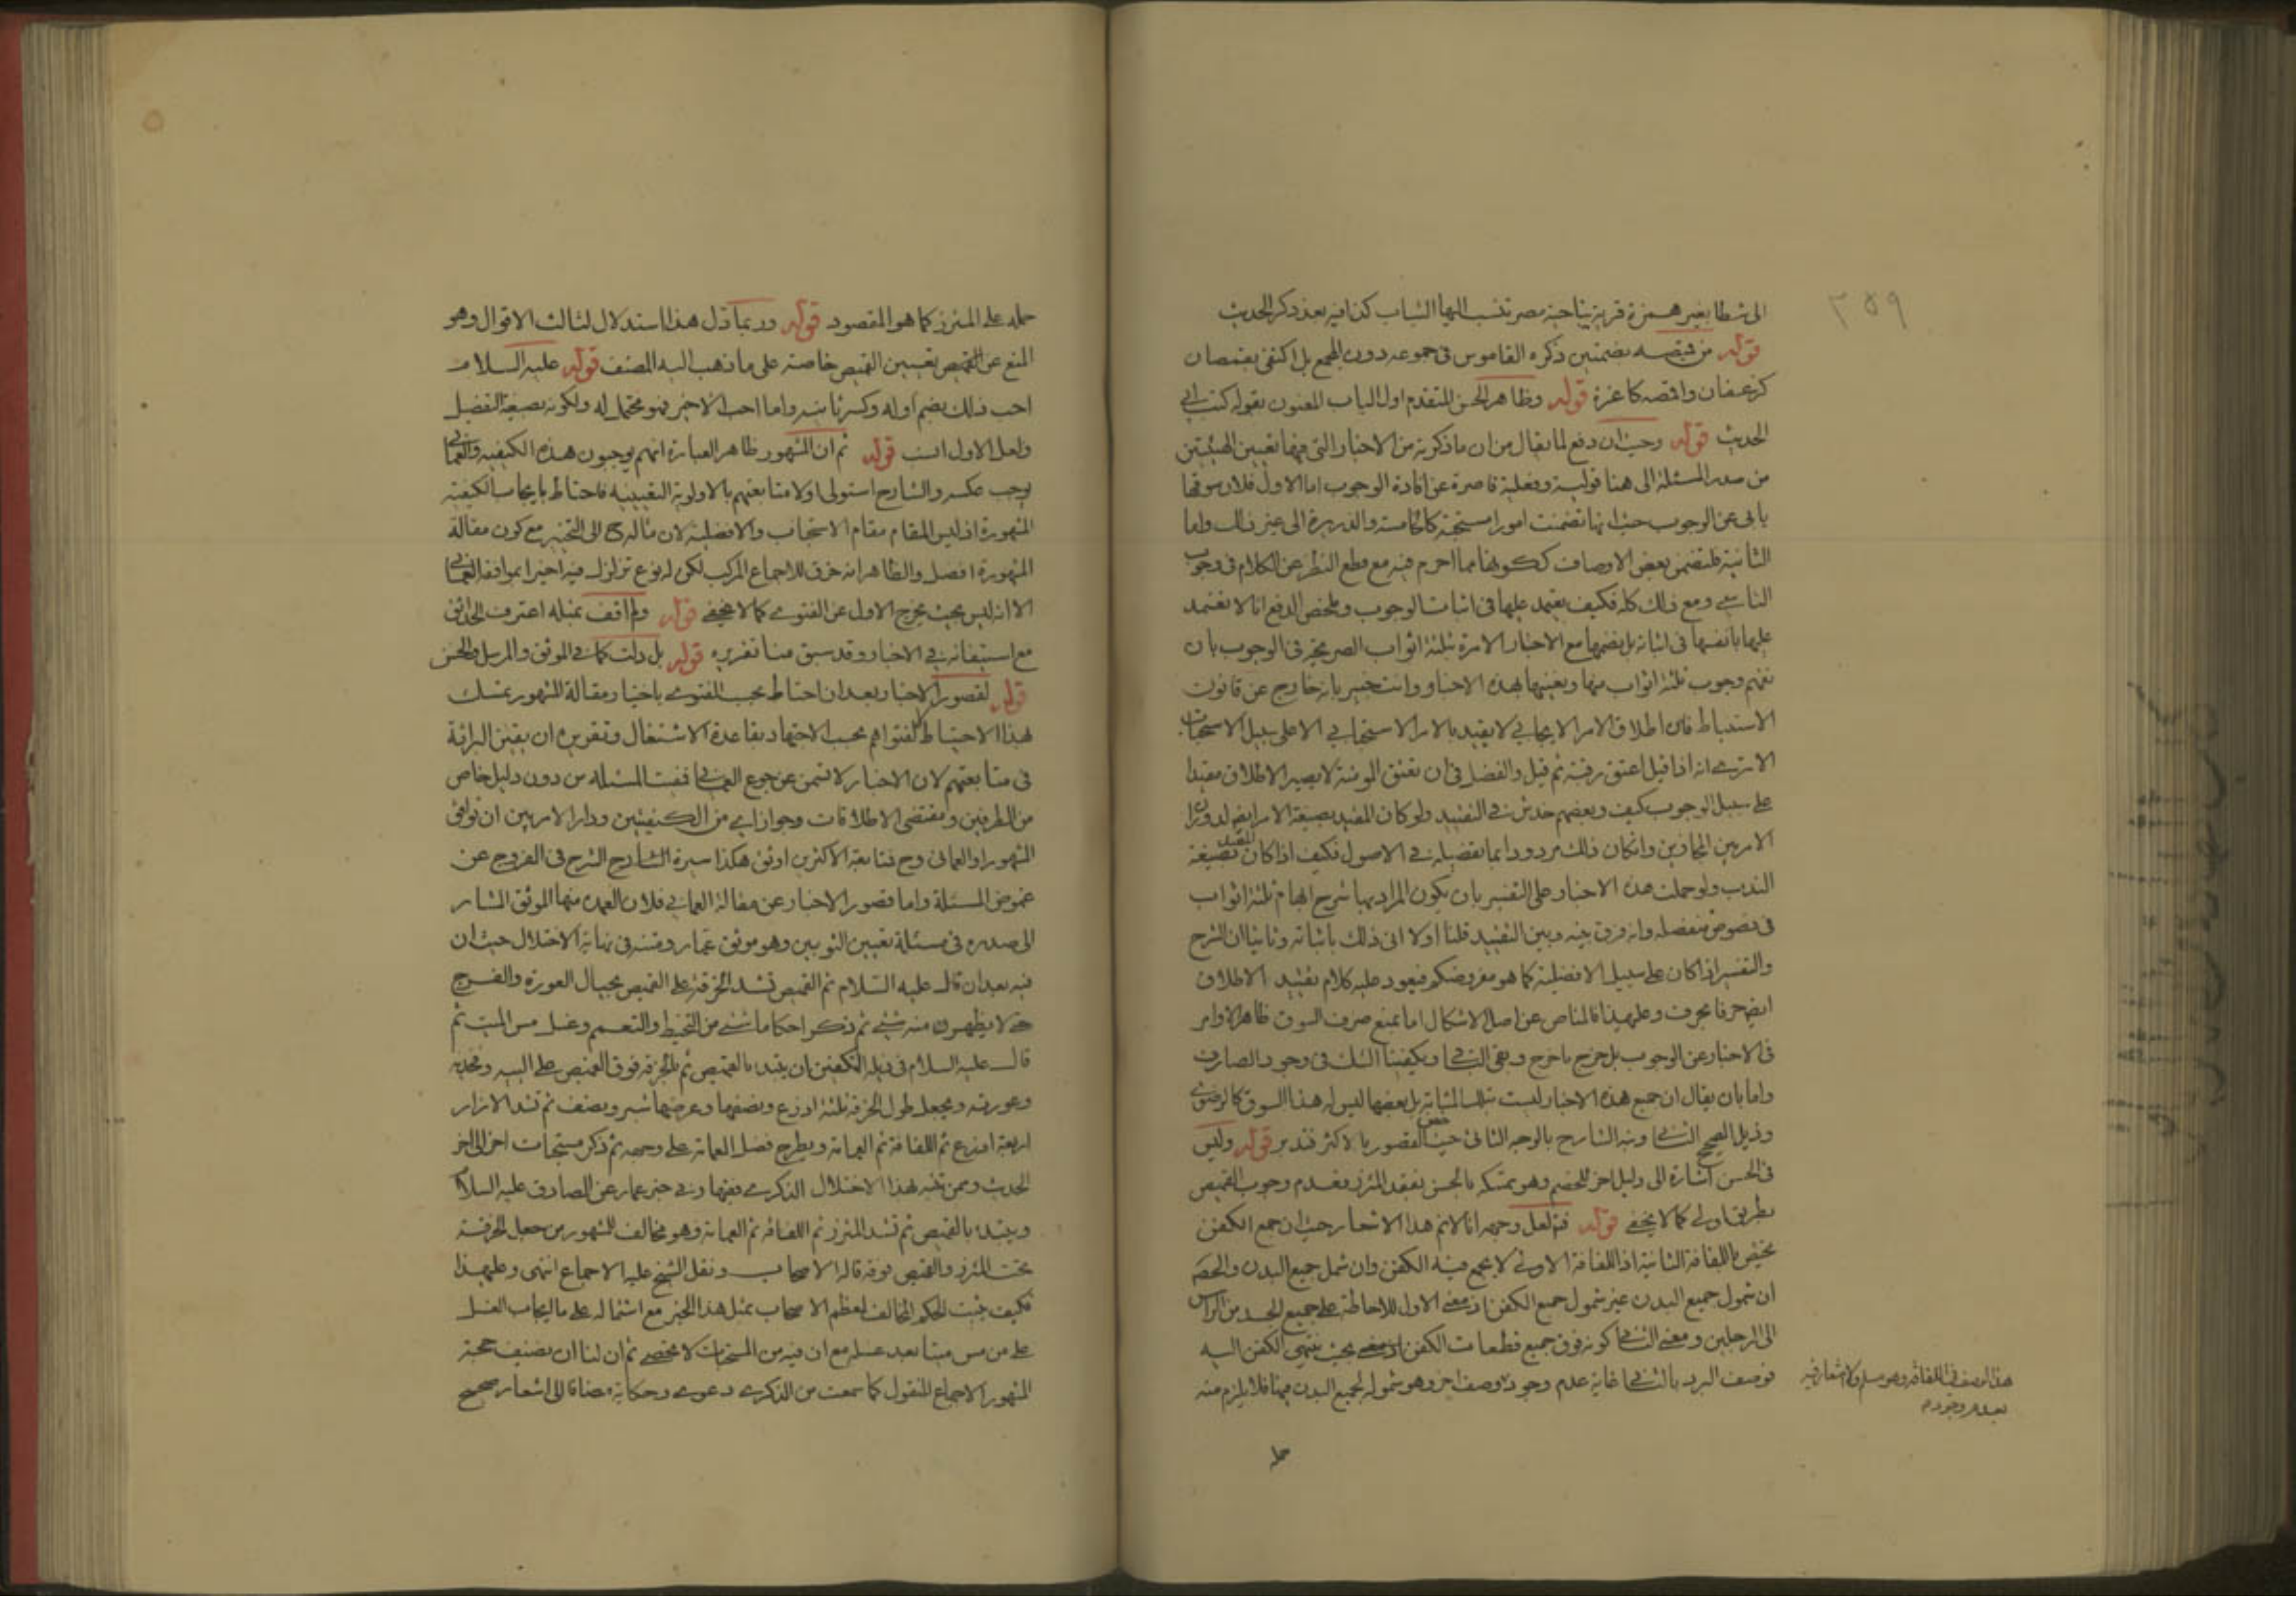 ٣٥٩
الى شطا بغير همزة قرية بناحية مصر تنسب اليها الثياب كذا فيه بعد ذكر الحديث
قوله من قبيصه بضمتين ذكره القاموس في جموعه دون المجمع بل اكتفى بقمصان
كزعفان واقمصه كاغزة قوله وظاهر الحسن المتقدم اول الباب المعنون بقوله كتب الي
الحديث قوله وحيث ان دفع لما يقال من ان ما ذكرته من الاخبار التي فيها تعيين الهيئتين
من صدر المسئلة الى هنا قولية وفعلية قاصرة عن افادة الوجوب اما الاول فلان سوقها
يابى عن الوجوب حيث انها تضمنت امورا مستحبة كالخامسة والذريرة الى غير ذلك واما
الثانية فلتضمن بعض الاوصاف ككونها مما احرم فيه مع قطع النظر عن الكلام في وجوب
التاسي ومع ذلك كله فكيف يعتمد عليها في اثبات الوجوب وملخص الدفع انا لا نعتمد
عليها بانفسها في اثباته بل بضمها مع الاخبار الامرة بثلثة اثواب الصريحة في الوجوب بان
نفهم وجوب ثلثة اثواب منها وتعيينها بهذه الاخبار وانت خبير بانه خارج عن قانون
الاستنباط فان اطلاق الامر الايجابي لا يقيد بالامر الاستحبابي الا على سبيل الاستحباب
الا ترى انه اذا قيل اعتق رقبة ثم قيل والفضل في ان تعتق المومنة لا يصير الاطلاق مقيدا
على سبيل الوجوب كيف وبعضهم خدش في التقييد ولو كان المقيد بصيغة الامر ايضا لدوران
الامر بين المجازين وان كان ذلك مردودا بما تفصيله في الاصول فكيف اذا كان المقيد بصيغة
الندب ولو حملت هذه الاخبار على التفسير بان يكون المراد بها شرح ابهام ثلثة اثواب
في نصوص منفصله وانه فرق بينه وبين التقييد قلنا اولا انى ذلك باثباته وثانيا ان الشرح
والتفسير اذا كان على سبيل الافضلية كما هو مفروضكم فيعود عليه كلام تقييد الاطلاق
ايضا حرفا بحرف وعليهذا فالمناص عن اصل الاشكال اما بمنع صرف السوق ظاهر الاوامر
في الاخبار عن الوجوب بل خرج ما خرج وبقي الباقي ويكفينا الشك في وجود الصارف
واما بان يقال ان جميع هذه الاخبار ليست بتلك المثابة بل بعضها ليس له هذا السوق كالرضوي
وذيل الصحيح الثاني ونبه الشارح بالوجه الثاني حيث خص القصور بالاكثر فتدبر قوله وليس
في الحسن اشارة الى دليل اخر للخصم وهو تمسكه بالحسن بفقد المئزر فعدم وجوب القميص
بطريق اولى كما لا يخفى قوله فتم لعل وجهه انا لا نم هذا الاشعار حيث ان جمع الكفن
يختص باللفافة الثانية اذ اللفافة الاولى لا يجمع فيه الكفن وان شمل جميع البدن والحصة
ان شمول جميع البدن غير شمول جميع الكفن اذ معنى الاول للاحاطة على جميع الجسد من الراس
الى الرجلين ومعنى الثاني كونه فوق جميع قطعات الكفن بحيث ينتهي الكفن اليه
فوصف البرد بالثاني غاية عدم وجود وصف اخر وهو شموله لجميع البدن فيها فلا يلزم منه
هذا الوصف في اللفافة وهو مسلم ولا اشعار فيه
بعدم وجوده
حمله
حمله على المئزر كما هو المقصود قوله وربما دل هذا استدلال لثالث الاقوال وهو
المنع عن القميص بتعيين القميص خاصته على ما ذهب اليه المصنف قوله عليه السلام
احب ذلك بضم اوله وكسر ثانيه واما احب الاخير فهو محتمل له ولكونه بصيغة التفضيل
ولعل الاول انسب قوله ثم ان المشهور ظاهر العبارة انهم يوجبون هذه الكيفية والعماني
يوجب عكسه والشارح استولى اولا متابعتهم بالاولوية التعيينيه فاحتاط بايجاب الكيفية
المشهورة اذ ليس المقام مقام الاستحباب والافضلية لان مآله ح الى التخيير مع كون مقالة
المشهورة افضل والظاهر انه خرق للاجماع المركب لكن له نوع تزلزل فيه اخيرا بموافقة العماني
الا انه ليس بحيث يخرج الاول عن الفتوى كما لا يخفى قوله ولم اقف بمثله اعترف الحدائق
مع استيفائه في الاخبار وقد سبق منا تقريره قوله بل دلت كما في الموثق والمرسل والحسن
قوله لقصور الاخبار بعد ان احتاط بحسب الفتوى باختيار مقالة المشهور تمسك
لهذا الاحتياط لفتواهم بحسب الاجتهاد بقاعدة الاشتغال وتقريره ان يقين البرائة
في متابعتهم لان الاخبار لا تسمن عن جوع العماني فبقيت المسئله من دون دليل خاص
من الطرفين ومقتضى الاطلاقات وجواز اي من الكيفيتين ودار الامر بين ان نوافق
المشهور او العماني وح فمتابعة الاكثرين اوثق هكذا سيرة الشارح الشرح في الخروج عن
غموض المسئلة واما قصور الاخبار عن مقالة العماني فلان العمدة منها الموثق المشار
الى صدره في مسئلة تعيين الثوبين وهو موثق عمار ومتنه في نهاية الاختلال حيث ان
فيه بعد ان قال عليه السلام ثم القميص تشد الخرقة على القميص بحيال العورة والفرج
حتى لا يظهر منه شئ ثم ذكر احكاما شتى من التحنيط والتعميم وغسل مس الميت ثم
قال عليه السلام في ذيله التكفين ان يبتدء بالقميص ثم بالخرقة فوق القميص على اليتيه وفخذيه
وعورته ويجعل طول الخرقة ثلثة اذرع ونصفها وعرضها شبر ونصف ثم تشد الازار
اربعة اذرع ثم اللفافة ثم العمامة ويطرح فضل العمامة على وجهه ثم ذكر مستحبات اخر الى اخر
الحديث وممن تنبه لهذا الاختلال الذكرى ففيها وفي خبر عمار عن الصادق عليه السلام
ويبتدء بالقميص ثم تشد المئزر ثم اللفافة ثم العمامة وهو مخالف للمشهور من جعل الخرقة
تحت المئزر والقميص فوقه قاله الاصحاب ونقل الشيخ عليه الاجماع انتهى وعليهذا
فكيف يثبت الحكم المخالف لمعظم الاصحاب بمثل هذا الخبر مع اشتماله على ما ايجاب الغسل
على من مس ميتا بعد غسله مع ان فيه من المستحبات لا تحصى ثم ان لنا ان نضيف حجة
المشهور الاجماع المنقول كما سمعت من الذكرى دعوى وحكاية مضافا الى اشعار صحيح